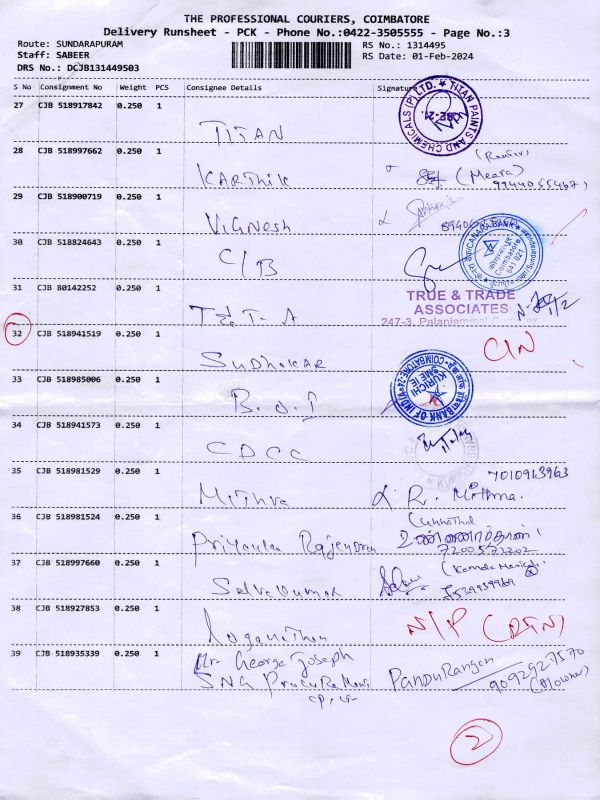 THE PROFESSIONAL COURIERS, COIMBATORE
Delivery Runsheet - PCK - Phone No.:0422-3505555 - Page No.:3
Route: SUNDARAPURAM RS No.: 1314495
Staff: SABEER RS Date: 01-Feb-2024
DRS No.: DCJB131449503
S No Consignment No Weight PCS Consignee Details Signature
27 CJB 518917842 0.250 1
TITAN
TITAN PAINTS AND CHEMICALS (P) LTD.
28 CJB 518997662 0.250 1
KARTHIK (Meera)
9944055467)
29 CJB 518900719 0.250 1
VIGNESH
30 CJB 518824643 0.250 1
C/B
CANARA BANK
Coimbatore
641 021
31 CJB 80142252 0.250 1
T & T - A
TRUE & TRADE
ASSOCIATES
247-3, Palaniammal Complex
32 CJB 518941519 0.250 1
SUDHAKAR C/N
33 CJB 518985006 0.250 1
B.O.I
BANK OF INDIA
KURICHI
SME
COIMBATORE-24
34 CJB 518941573 0.250 1
CDCC
35 CJB 518981529 0.250 1
7010913963
Mithra R. Mithra.
36 CJB 518981524 0.250 1
Priyanka Rajendra
(Unnathal
உண்ணாத்தாள்
7200572202
37 CJB 518997660 0.250 1
Selvakumar
38 CJB 518927853 0.250 1
Loganathan N/P (RTN)
39 CJB 518935339 0.250 1
Mr George Joseph
SNG Procurement PanduRangan
9092927570
(H/owner)
2